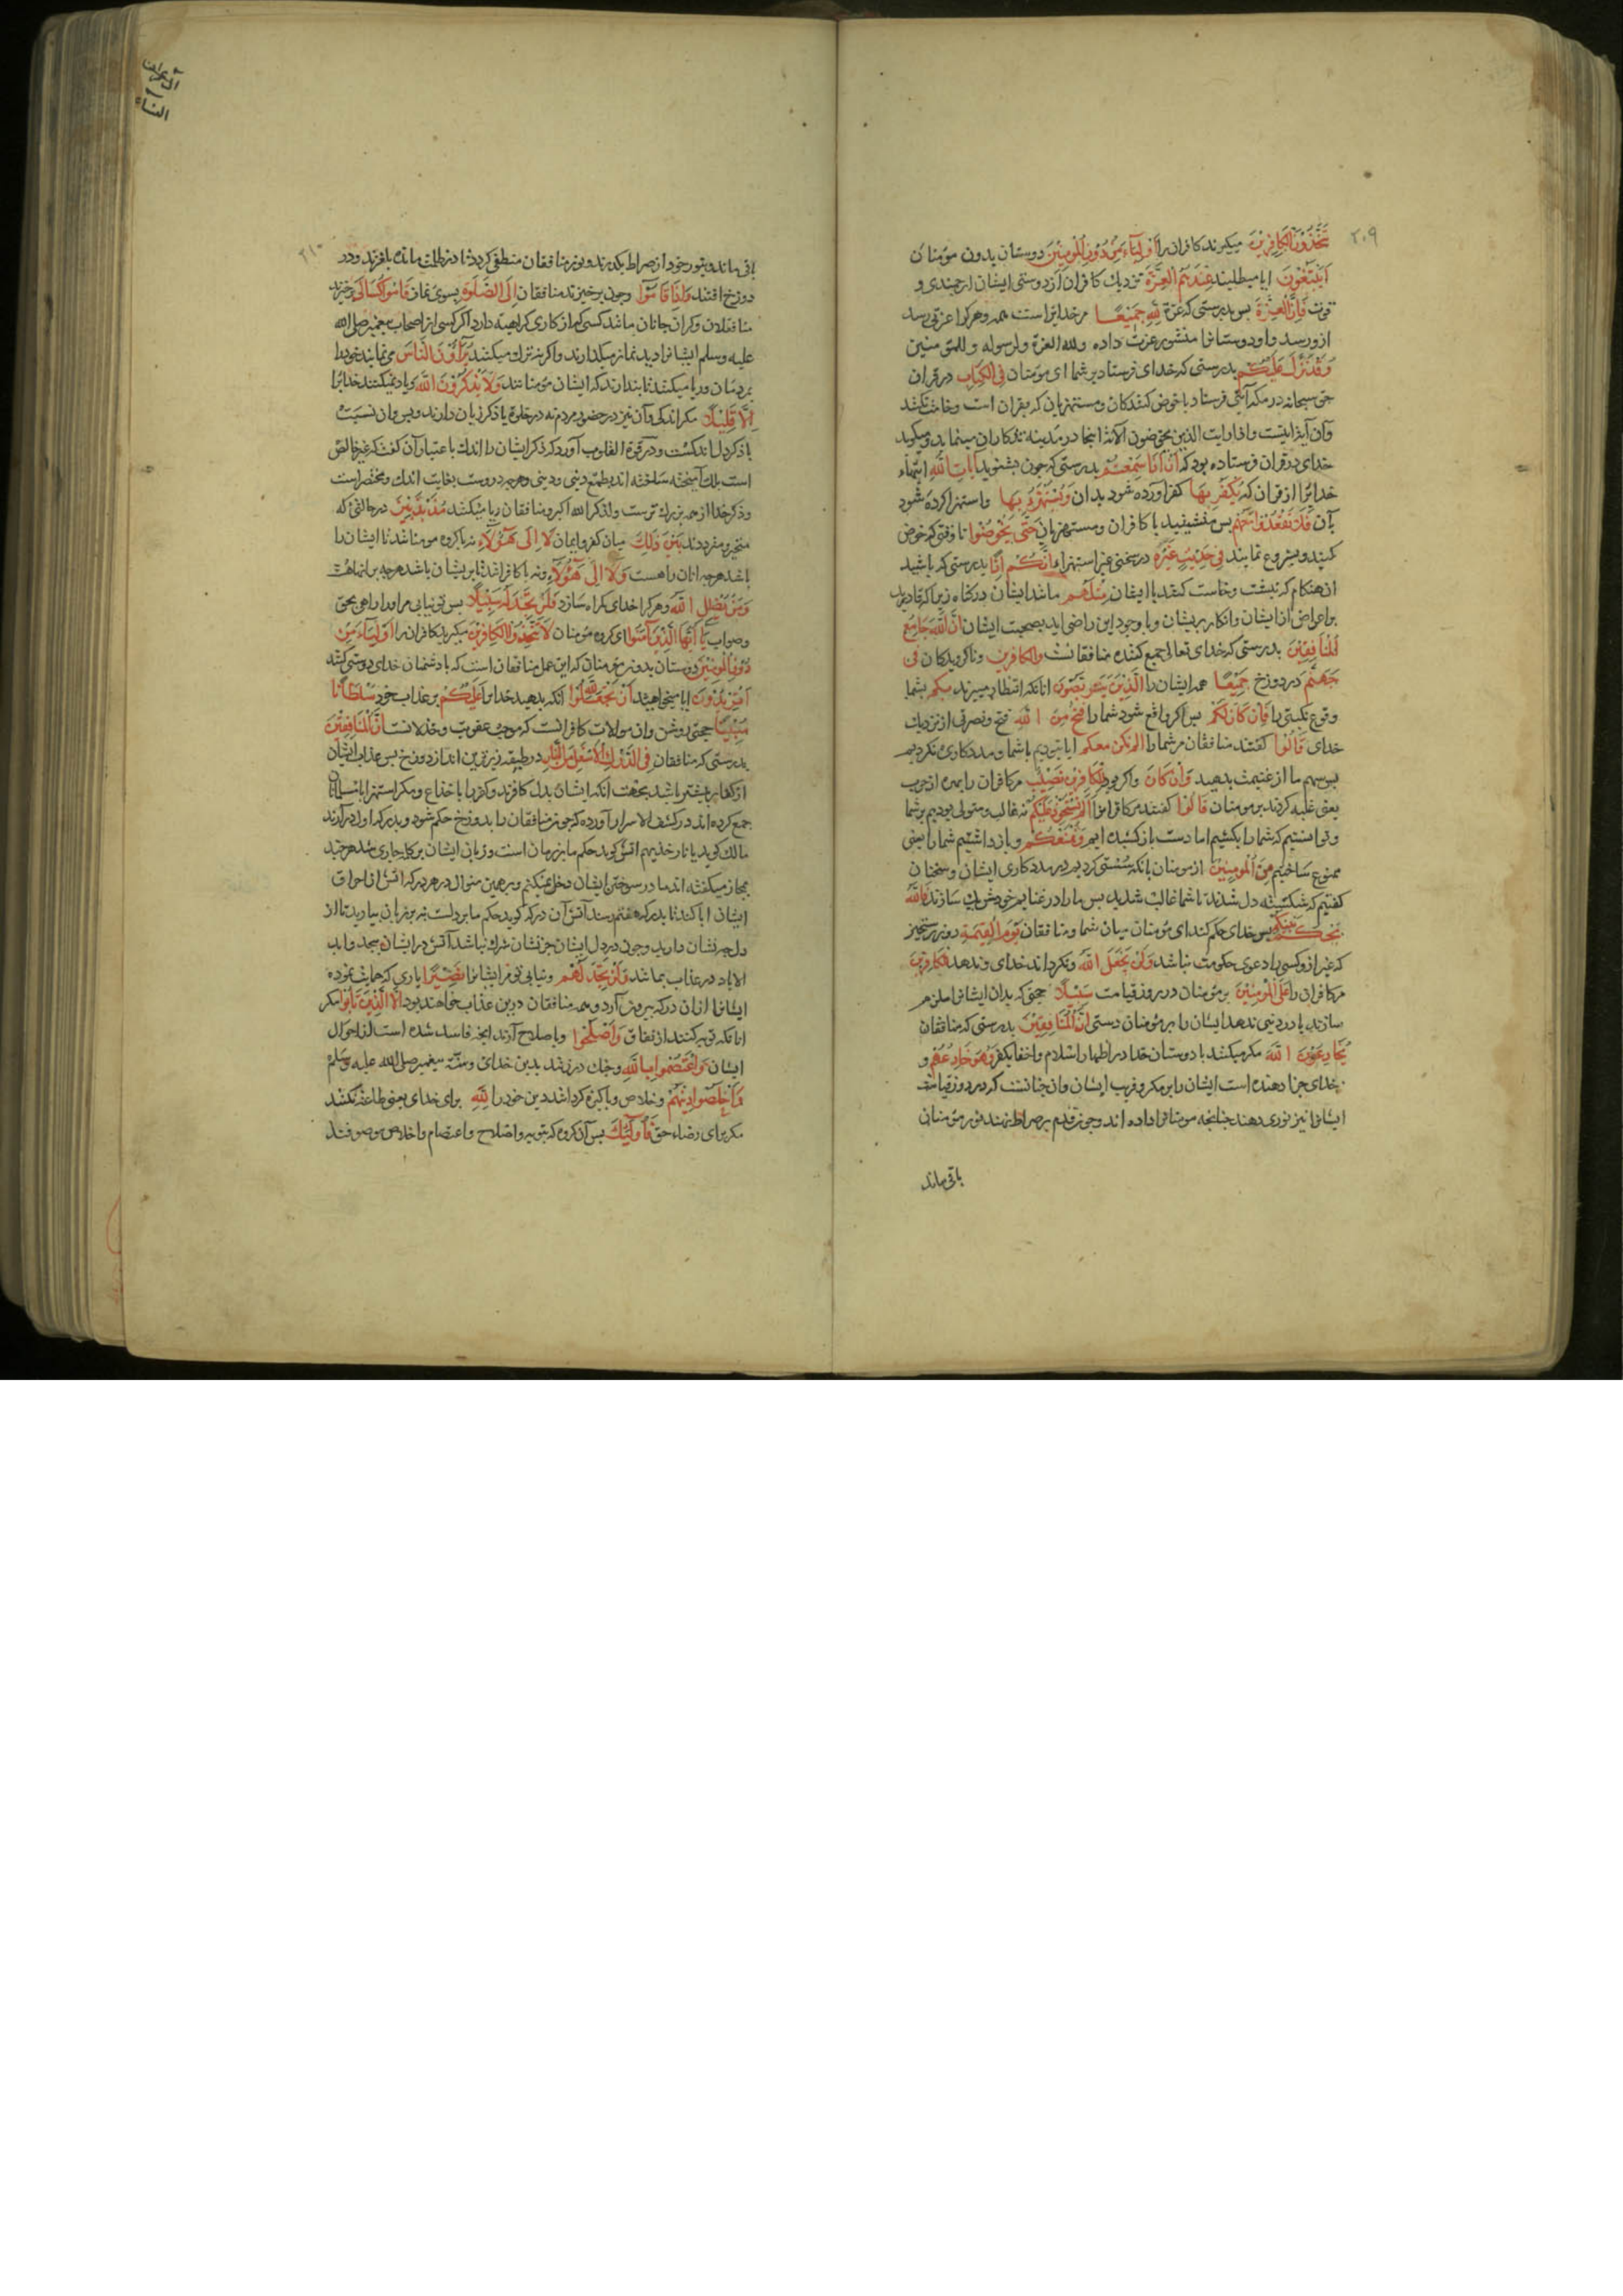 ٢٠٩
يَتَّخِذُونَ الكَافِرِينَ میکیرند کافران را أَوْلِيَاءَ مِنْ دُونِ الْمُؤمِنِينَ دوستان بدون مؤمنان
أَيَبْتَغُونَ ایا میطلبند عِنْدَهُمُ الْعِزَّةَ نزدیك کافران از دوستی ایشان ارجمندی و
قوت فَإِنَّ الْعِزَّةَ بس بدرستی که عزة لِلّٰهِ جَمِيعًا مر خدایراست همه وهرکرا عزتی رسد
ازو رسد واو دوستانرا منشور عزت داده ولله العزة ولرسوله وللمؤمنین
وَقَدْ نَزَّلَ عَلَيْكُمْ بدرستی که خدای فرستاد بر شما ای مؤمنان فِى الْكِتَابِ در قران
حق سبحانه در مکه آیتی فرستاد با خوض کنندکان ومستهزیان که بقران است وخاست نکنند
وآن آیة اینست واذا رایت الذین یخوضون الآیة اینجا در مدینه تذکار ان مینماید ومیکوید
خدای در قران فرستاده بود که أَنْ إِذَا سَمِعْتُمْ بدرستی که جون بشنوید آيَاتِ اللّٰهِ ایتهاء
خدایرا از قران که يُكْفَرُ بِهَا کفر اورده شود بدان وَيُسْتَهْزَءُ بِهَا واستهزا کرده شود
بآن فَلَا تَقْعُدُوا مَعَهُمْ بس منشینید با کافران ومستهزیان حَتّٰى يَخُوضُوا تا وقتی که خوض
کنند وشروع نمایند فِى حَدِيثٍ غَيْرِهِ در سخنی غیر استهزاء إِنَّكُمْ إِذًا بدرستی که باشید
ان هنکام که نشست وخاست کنید با ایشان مِثْلُهُمْ مانند ایشان در کناه زیرا که قادرید
بر اعراض از ایشان وانکار بریشان وبا وجود این راضی اید بصحبت ایشان إِنَّ اللّٰهَ جَامِعُ
الْمُنَافِقِينَ بدرستی که خدای تعالی جمع کننده منافقانست والكافرين وناکرویدکان فى
جَهَنَّمَ در دوزخ جَمِيعًا همه ایشان را الَّذِينَ يَتَرَبَّصُونَ انانکه انتظار میبرند بِكُمْ بشما
وقوع نکبتی را فَإِنْ كَانَ لَكُمْ بس اکر واقع شود شما را فَتْحٌ مِنَ اللّٰهِ فتح ونصرتی از نزدیك
خدای قَالُوا کفتند منافقان مر شما را الم نكن معكم ایا نبودیم با شما ومددکاری نکردیم
بس سهم ما از غنیمت بدهید وَإِنْ كَانَ واکر بود لِلْكَافِرِينَ نَصِيبٌ مر کافران را بهره از حرب
یعنی غلبه کردند بر مومنان قَالُوا کفتند مر کافرانرا أَلَمْ نَسْتَحْوِذْ عَلَيْكُمْ نه غالب ومتولی بودیم بر شما
وتوانستیم که شما را بکشیم اما دست باز کشیده ایم وَنَمْنَعْكُمْ وباز داشتیم شما را یعنی
ممنوع ساختیم مِنَ الْمُومِنِينَ از مومنان بانکه سستی کردیم در مددکاری ایشان وسخنان
کفتیم که شکسته دل شدند تا شما غالب شدید بس ما را در غنایم خود شریك سازند فَاللّٰهُ
يَحْكُمُ بَيْنَكُمْ بس خدای حکم کند ای مؤمنان میان شما ومنافقان يَوْمَ الْقِيٰمَةِ روز رستخیز
که غیر ازو کسی را دعوی حکومت نباشد وَلَنْ يَجْعَلَ اللّٰهُ ونکرداند خدای وندهد لِلْكَافِرِينَ
مر کافران را عَلَى الْمُؤمِنِينَ بر مؤمنان در روز قیامت سَبِيلًا حجتی که بدان ایشانرا ملزم
سازند یا در دنیی ندهد ایشان را بر مؤمنان دستی إِنَّ الْمُنَافِقِينَ بدرستی که منافقان
يُخَادِعُونَ اللّٰهَ مکر میکنند با دوستان خدا در اظهار اسلام واخفاء کفر وَهُوَ خَادِعُهُمْ و
خدای جزا دهنده است ایشان را بر مکر وفریب ایشان وان جنانست که در روز قیامت
ایشانرا نیز نوری دهند جنانجه مومنانرا داده اند وجون قدم بر صراط نهند نور مؤمنان
باقی ماند
آل عمران
النساء
٢١٠
باقی ماند وبنور خود از صراط بکذرند ونور منافقان منطفی کردد تا در ظلمت مانده بلغزند ودر
دوزخ افتند وَإِذَا قَامُوا وجون برخیزند منافقان إِلَى الصَّلٰوةِ بسوی نماز قَامُوا كُسَالٰى برخیزند
متثاقلان وکران جانان مانند کسی که از کاری کراهیه دارد اکر کسی از اصحاب پیغمبر صلی الله
علیه وسلم ایشانرا دید نماز میکذارند واکر نه ترك میکنند يُرَآؤُنَ النَّاسَ می نمایند خود را
بمردمان وریا میکنند تا بندارند که ایشان مؤمنانند وَلَا يَذْكُرُونَ اللّٰهَ ویاد نمیکنند خدایرا
إِلَّا قَلِيلًا مکر اندکی وآن نیز در حضور مردم نه در خلوة یا ذکر زبان دارند وبس وان نسبت
با ذکر دل اندکست ودر قوة القلوب آورده که ذکر ایشان را اندك باعتبار آن کفت که غیر خالص
است بلك آمیخته ساخته اند بطمع دنیی ودینی وهرجه در وست بغایت اندك ومختصر است
وذکر خدا از همه بزرك ترست ولذکر الله اکبر ومنافقان ریا میکنند مُذَبْذَبِينَ در حالتی که
متحیر ومترددند بَيْنَ ذٰلِكَ میان کفر وایمان لَا إِلٰى هٰؤُلَاءِ نه با کروه مومنا شد تا ایشان را
باشد هرجه انان را هست وَلَا إِلٰى هٰؤُلَاءِ ونه با کافران شد تا بریشان باشد هرجه برانهاست
وَمَنْ يُضْلِلِ اللّٰهُ وهرکرا خدای کمراه سازد فَلَنْ تَجِدَ لَهُ سَبِيلًا بس تو نیابی مر اورا راهی بحق
وصواب يَا أَيُّهَا الَّذِينَ آمَنُوا ای کروه مؤمنان لَا تَتَّخِذُوا الْكَافِرِينَ میکیرید کافران را أَوْلِيَاءَ مِنْ
دُونِ الْمُؤمِنِينَ دوستان بدون مؤمنان که این عمل منافقان است که با دشمنان خدای دوستی کنند
أَتُرِيدُونَ ایا میخواهید أَنْ تَجْعَلُوا لِلّٰهِ انکه بدهید خدایرا عَلَيْكُمْ بر عذاب خود سُلْطَانًا
مُبِينًا حجتی روشن وان موالات کافرانست که موجب عقوبت وخذلانست إِنَّ الْمُنَافِقِينَ
بدرستی که منافقان فِى الدَّرْكِ الْأَسْفَلِ مِنَ النَّارِ در طبقه زیرترین اند از دوزخ بس عذاب ایشان
از کفار بیشتر باشد بجهت آنکه ایشان بدل کافرند وکفر را با خداع ومکر استهزا بانسانان
جمع کرده اند در کشف الاسرار آورده که جون منافقان را بدوزخ حکم شود وبدرکه اول درآرند
مالك کوید یا نار خذیهم اتش کوید حکم ما بر زبان است وزبان ایشان بر کلمه جاری شد هرچند
بمجاز میکفته اند ما در سوختن ایشان دخل نمیکنم وبرهمین منوال در هر درکه اتش از احراق
ایشان ابا کند تا بدرکه هفتم رسند آتش آن درکه کوید حکم ما بر دلست نه بر زبان بیارید تا از
دل جه نشان دارید وجون در دل ایشان جز نشان شرك نباشد آتش در ایشان بیجد وابد
الاباد در عذاب بماشند وَلَنْ تَجِدَ لَهُمْ ونیابی تو مر ایشانرا نَصِيرًا یاری که حمایت نموده
ایشانرا از ان درکه بیرون آرد وهمه منافقان درین عذاب خواهند بود إِلَّا الَّذِينَ تَابُوا مکر
انانکه توبه کنند از نفاق وَأَصْلَحُوا وباصلاح آرند انجه فاسد شده است از احوال
ایشان وَاعْتَصَمُوا بِاللّٰهِ وجنك در زنند بدین خدای وسنت پیغمبر صلی الله علیه وسلم
وَأَخْلَصُوا دِينَهُمْ وخلاص وباکیزه کرداند دین خود را لِلّٰهِ برای خدای یعنی طاعت نکنند
مکر برای رضاء حق فَأُولٰئِكَ بس آن کروه که بتوبه واصلاح واعتصام واخلاص موصوفند